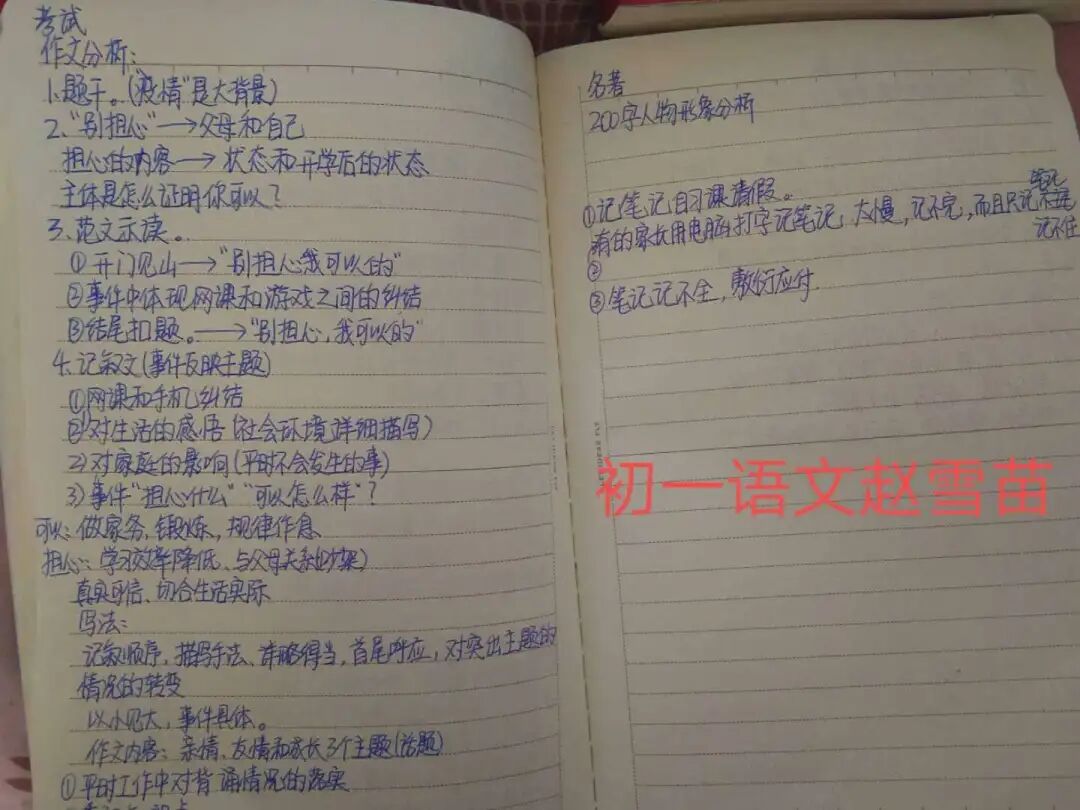 考试
作文分析：
1.题干。("疫情"是大背景)
2."别担心"→父母和自己
担心的内容→状态和开学后的状态
主体是怎么证明你可以？
3、范文示读。
①开门见山→"别担心我可以的"
②事件中体现网课和游戏之间的纠结
③结尾扣题。→"别担心，我可以的"
4.记叙文(事件反映主题)
①网课和手机纠结
②对生活的感悟(社会环境详细描写)
2)对家庭的影响(平时不会发生的事)
3)事件"担心什么""可以怎么样"？
可以：做家务，锻炼，规律作息
担心：学习效率降低、与父母关系(吵架)
真实可信、切合生活实际
写法：
记叙顺序，描写手法、详略得当，首尾呼应，对突出主题的
情况的转变
以小见大，事件具体。
作文内容：亲情、友情和成长3个主题(话题)
①平时工作中对背诵情况的落实
名著
200字人物形象分析
①记笔记自习课请假。
有的家长用电脑打字记笔记，太慢，记不完，而且只记
笔记
记不住
②
③笔记记不全，敷衍应付
初一语文赵雪苗